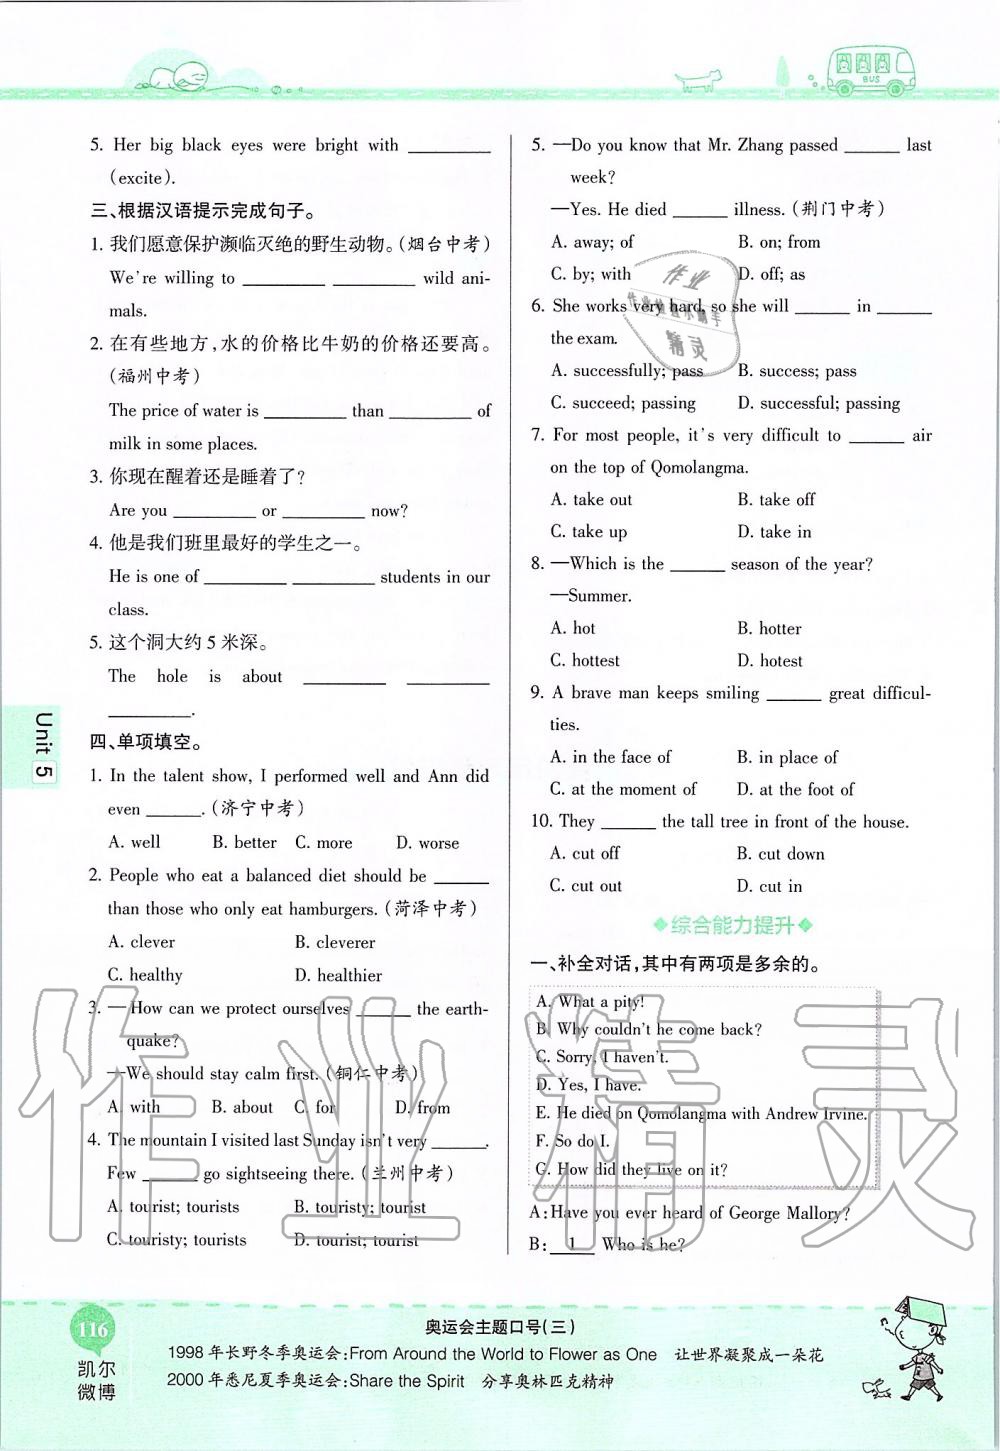 BUS
5. Her big black eyes were bright with ________
(excite).
三、根据汉语提示完成句子。
1. 我们愿意保护濒临灭绝的野生动物。(烟台中考)
We're willing to ________ ________ wild ani-
mals.
2. 在有些地方,水的价格比牛奶的价格还要高。
(福州中考)
The price of water is ________ than ________ of
milk in some places.
3. 你现在醒着还是睡着了?
Are you ________ or ________ now?
4. 他是我们班里最好的学生之一。
He is one of ________ ________ students in our
class.
5. 这个洞大约 5 米深。
The hole is about ________ ________
________.
四、单项填空。
1. In the talent show, I performed well and Ann did
even ______. (济宁中考)
A. well B. better C. more D. worse
2. People who eat a balanced diet should be ______
than those who only eat hamburgers. (菏泽中考)
A. clever B. cleverer
C. healthy D. healthier
3. —How can we protect ourselves ______ the earth-
quake?
—We should stay calm first. (铜仁中考)
A. with B. about C. for D. from
4. The mountain I visited last Sunday isn't very ______.
Few ______ go sightseeing there. (兰州中考)
A. tourist; tourists B. touristy; tourist
C. touristy; tourists D. tourist; tourist
Unit 5
5. —Do you know that Mr. Zhang passed ______ last
week?
—Yes. He died ______ illness. (荆门中考)
A. away; of B. on; from
C. by; with D. off; as
6. She works very hard, so she will ______ in ______
the exam.
A. successfully; pass B. success; pass
C. succeed; passing D. successful; passing
7. For most people, it's very difficult to ______ air
on the top of Qomolangma.
A. take out B. take off
C. take up D. take in
8. —Which is the ______ season of the year?
—Summer.
A. hot B. hotter
C. hottest D. hotest
9. A brave man keeps smiling ______ great difficul-
ties.
A. in the face of B. in place of
C. at the moment of D. at the foot of
10. They ______ the tall tree in front of the house.
A. cut off B. cut down
C. cut out D. cut in
综合能力提升
一、补全对话,其中有两项是多余的。
A. What a pity!
B. Why couldn't he come back?
C. Sorry, I haven't.
D. Yes, I have.
E. He died on Qomolangma with Andrew Irvine.
F. So do I.
G. How did they live on it?
A: Have you ever heard of George Mallory?
B: 1 Who is he?
作业精灵
116
凯尔
微博
奥运会主题口号(三)
1998 年长野冬季奥运会:From Around the World to Flower as One 让世界凝聚成一朵花
2000 年悉尼夏季奥运会:Share the Spirit 分享奥林匹克精神